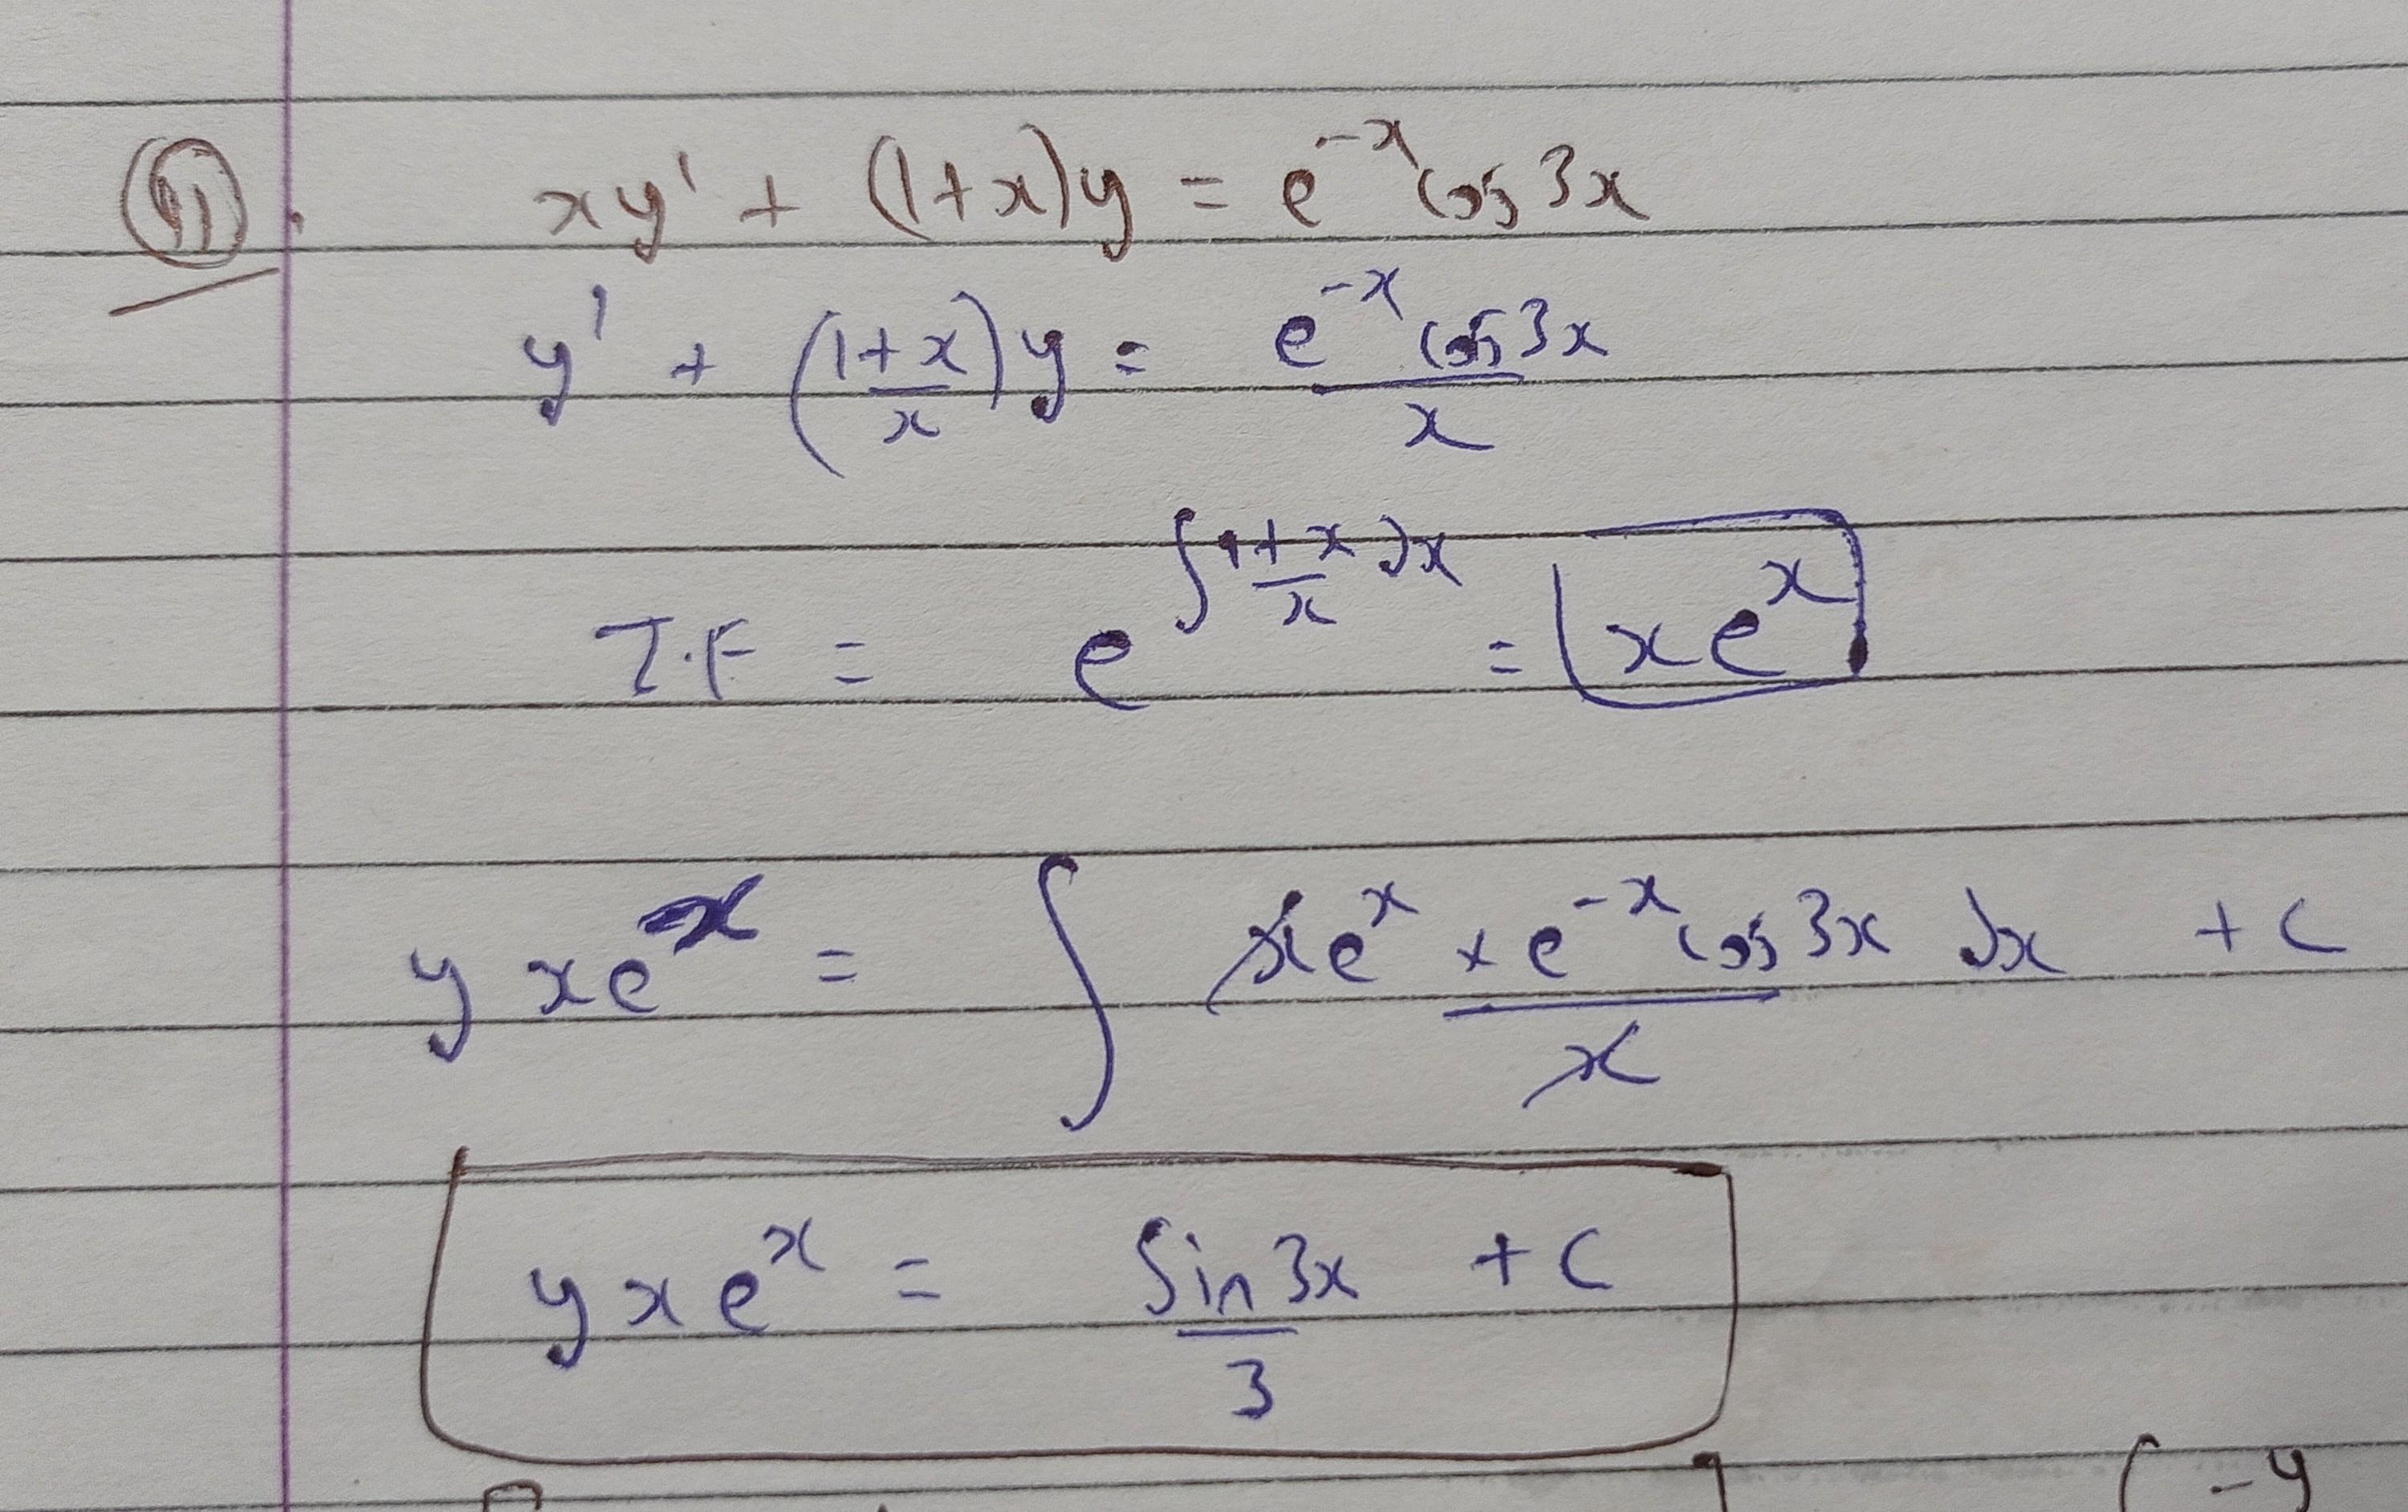 (11). xy' + (1+x)y = e^{-x} cos 3x
y' + ((1+x)/x) y = (e^{-x} cos 3x)/x
I.F = e^{∫ (1+x)/x dx} = xe^x
y xe^x = ∫ xe^x × (e^{-x} cos 3x)/x dx + c
y x e^x = (Sin 3x)/3 + c
-y